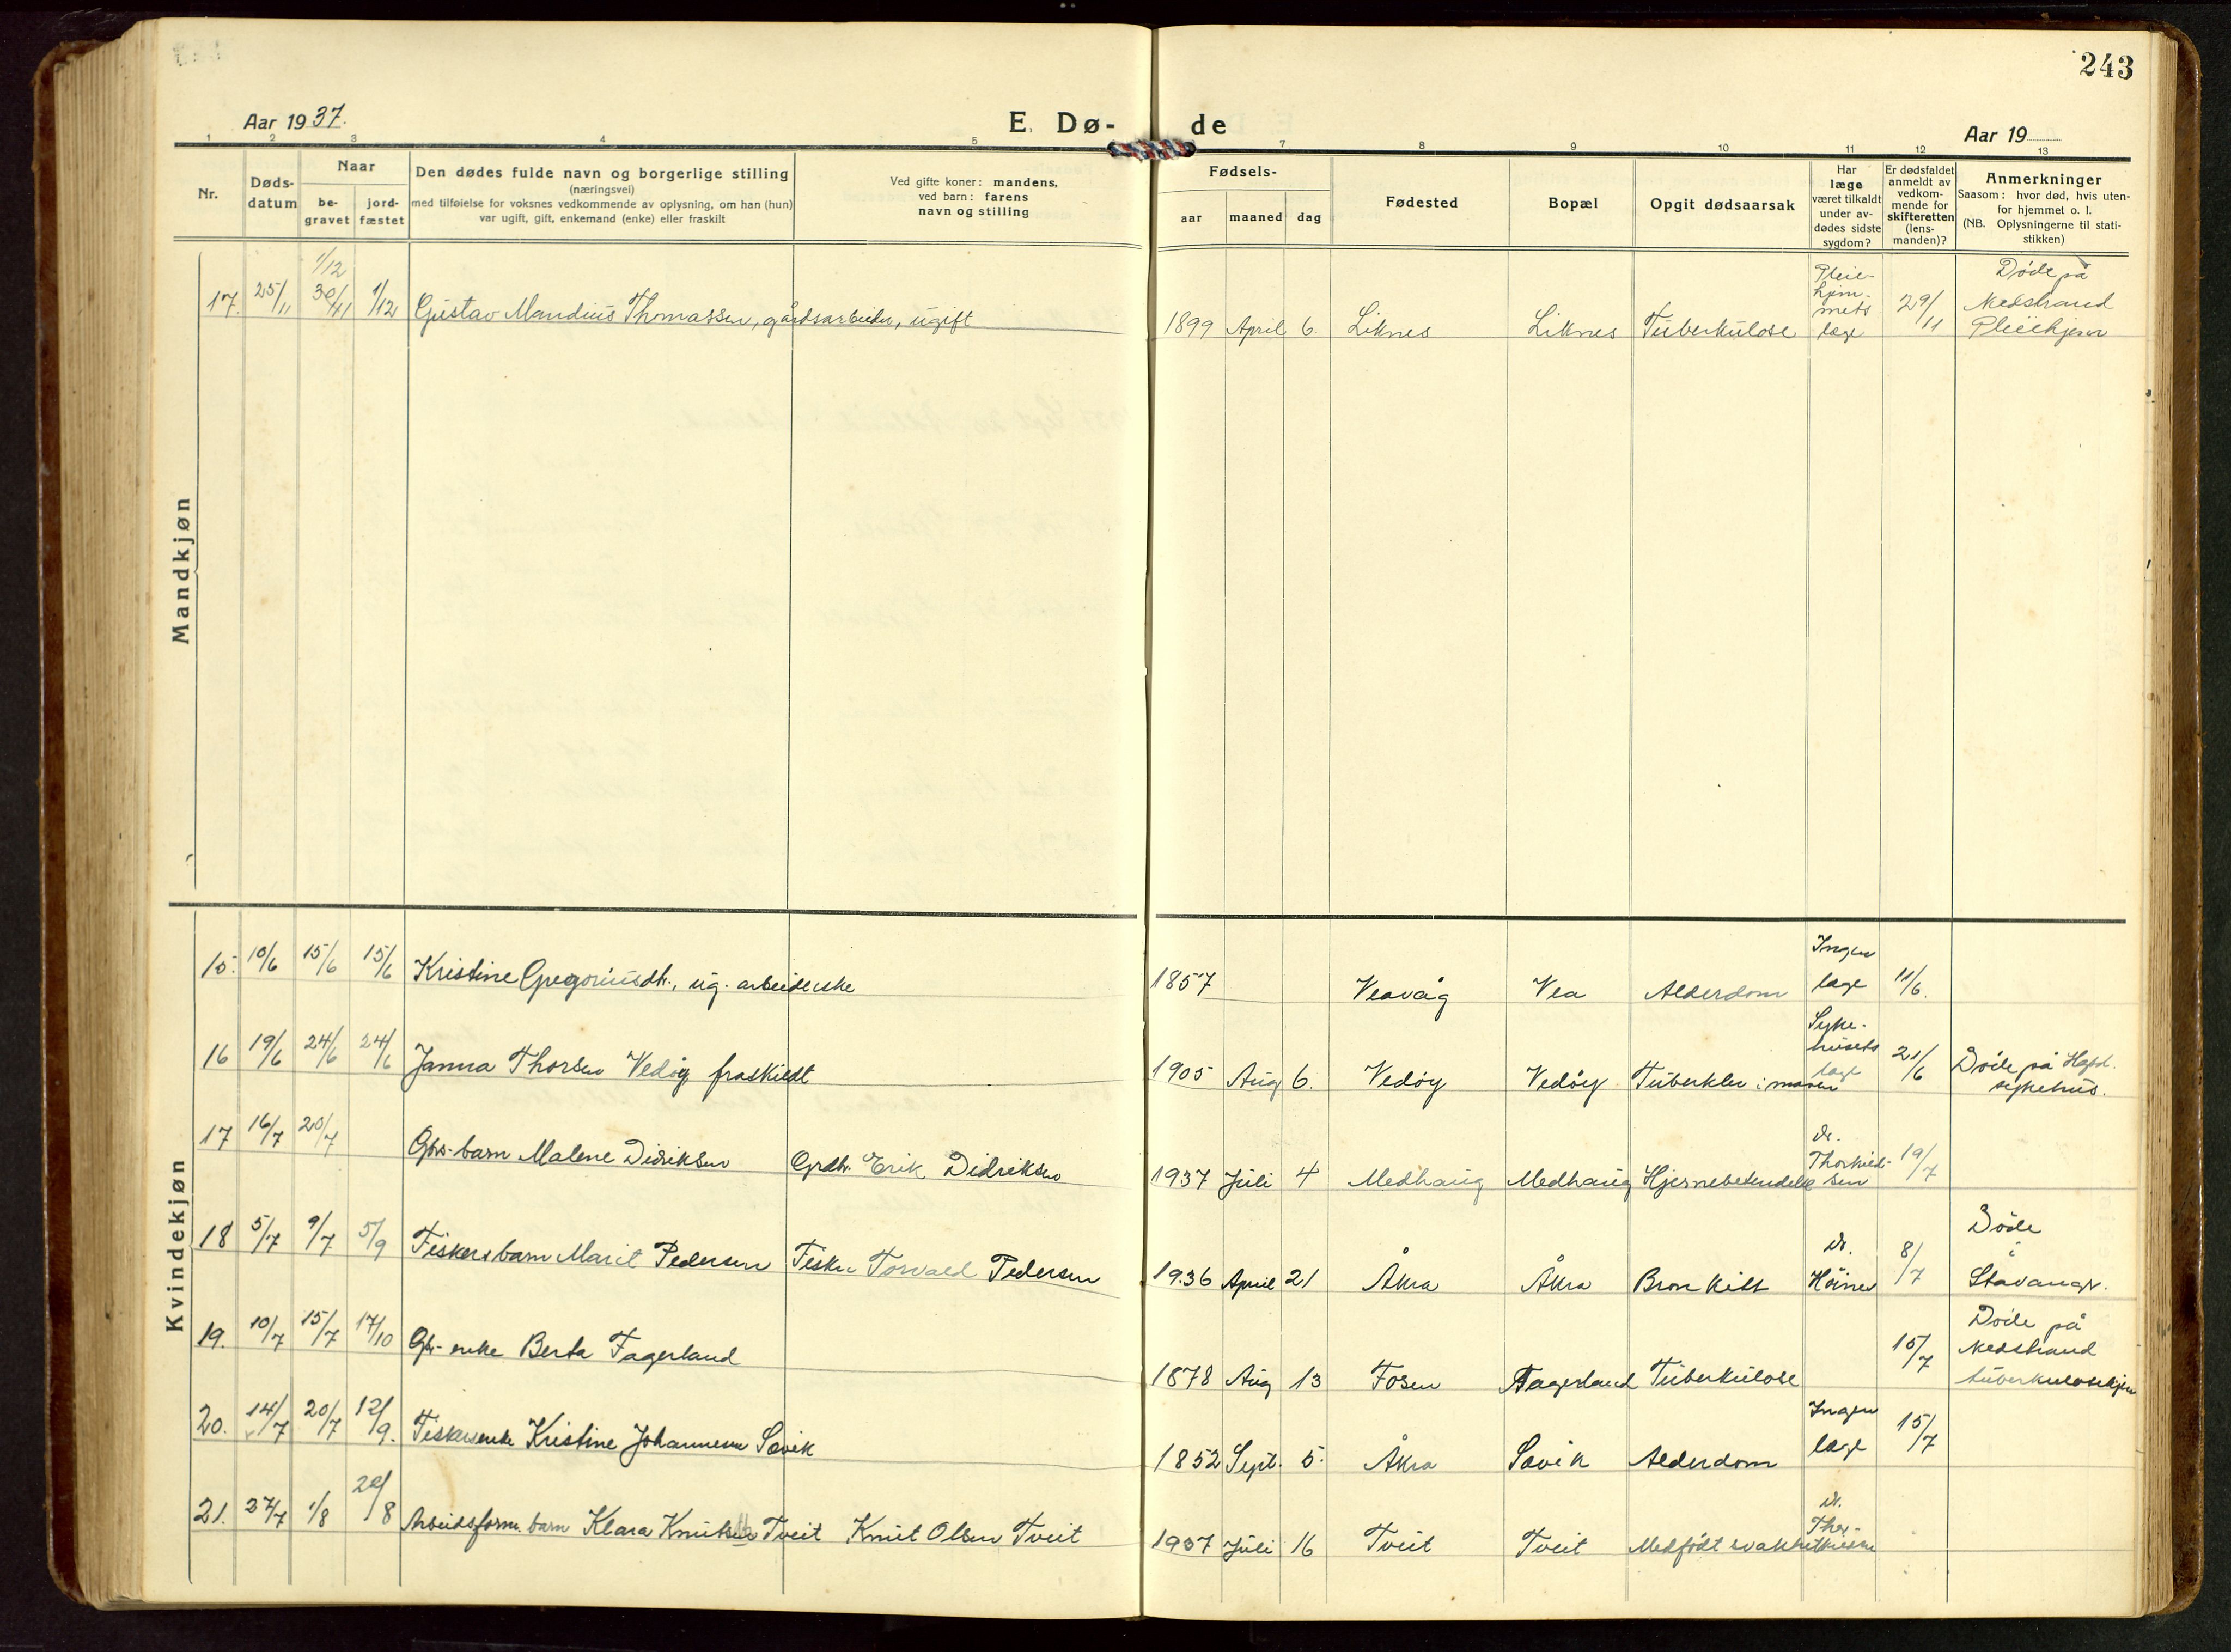 243
Aar 1937.
E. Dø-
de
Aar 19
1 2 3 4 5 7 8 9 10 11 12 13
Nr.
Døds-
datum
Naar
be-
gravet
jord-
fæstet
Den dødes fulde navn og borgerlige stilling
(næringsvei)
med tilføielse for voksnes vedkommende av oplysning, om han (hun)
var ugift, gift, enkemand (enke) eller fraskilt
Ved gifte koner: mandens,
ved barn: farens
navn og stilling
Fødsels-
aar
maaned
dag
Fødested
Bopæl
Opgit dødsaarsak
Har
læge
været tilkaldt
under av-
dødes sidste
sygdom?
Er dødsfaldet
anmeldt av
vedkom-
mende for
skifteretten
(lens-
manden)?
Anmerkninger
Saasom: hvor død, hvis uten-
for hjemmet o. l.
(NB. Oplysningerne til stati-
stikken)
Mandkjøn
1/12
17. 25/11 30/11 1/12 Gustav Mandius Thomassen, gårdsarbeider, ugift
1899 April 6. Liknes Liknes Tuberkulose
Pleie-
hjem-
mets
læge
29/11
Døde på
Nedstrand
Pleiehjem
Kvindekjøn
15. 10/6 15/6 15/6 Kristine Gregoriusdt., ug. arbeiderske
1857 Veavåg Vea Alderdom
Ingen
læge
11/6.
16 19/6 24/6 24/6 Janna Thorsen Vedøy fraskildt
1905 Aug 6. Vedøy Vedøy Tuberkler i maven
Syke-
husets
læge
21/6
Døde på
sykehus.
17 16/7 20/7 Gbr.-barn Malene Didriksen Grdbr. Erik Didriksen
1937 Juli 4 Medhaug Medhaug Hjernebetendelse
dr.
Thorkild-
sen
19/7
18 5/7 9/7 5/9 Fiskersbarn Marit Pedersen Fisker Torvald Pedersen
1936 April 21 Åkra Åkra Bronkitt
dr.
8/7
Døde
i
Stavanger.
19. 10/7 15/7 17/10 Gbr.-enke Berta Fagerland
1878 Aug 13 Fosen Fagerland Tuberkulose
15/7
Døde på
Nedstrand
tuberkulosehjem
20. 14/7 20/7 12/9. Fiskerenke Kristine Johannesen Sævik
1852 Sept. 5. Åkra Sævik Alderdom
Ingen
læge
15/7
21. 27/7 1/8 20/8 Arbeidsform. barn Klara Knutsen Tveit Knut Olsen Tveit
1937 Juli 16 Tveit Tveit Medfødt svakhet
dr.
Thor-